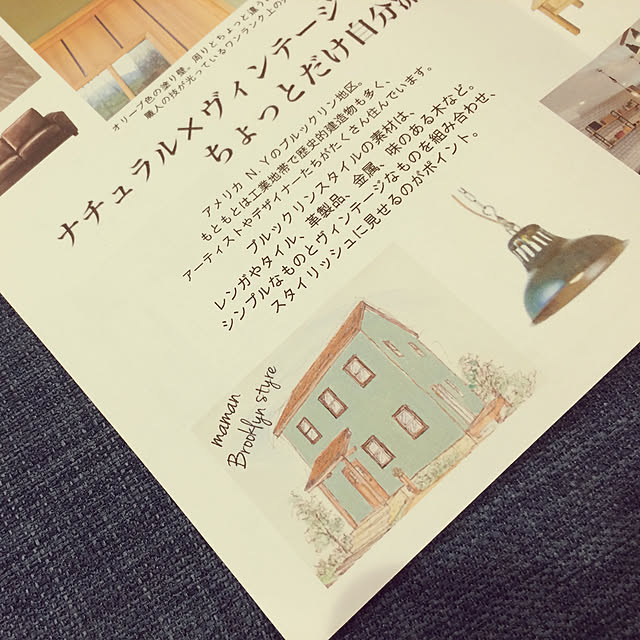 オリーブ色の塗り壁。周りとちょっと違う
職人の技が光っているワンランク上の
ナチュラル×ヴィンテージ
ちょっとだけ自分流
アメリカ N.Yのブルックリン地区。
もともとは工業地帯で歴史的建造物も多く、
アーティストやデザイナーたちがたくさん住んでいます。
ブルックリンスタイルの素材は、
レンガやタイル、革製品、金属、味のある木など。
シンプルなものとヴィンテージなものを組み合わせ、
スタイリッシュに見せるのがポイント。
maman
Brooklyn styre